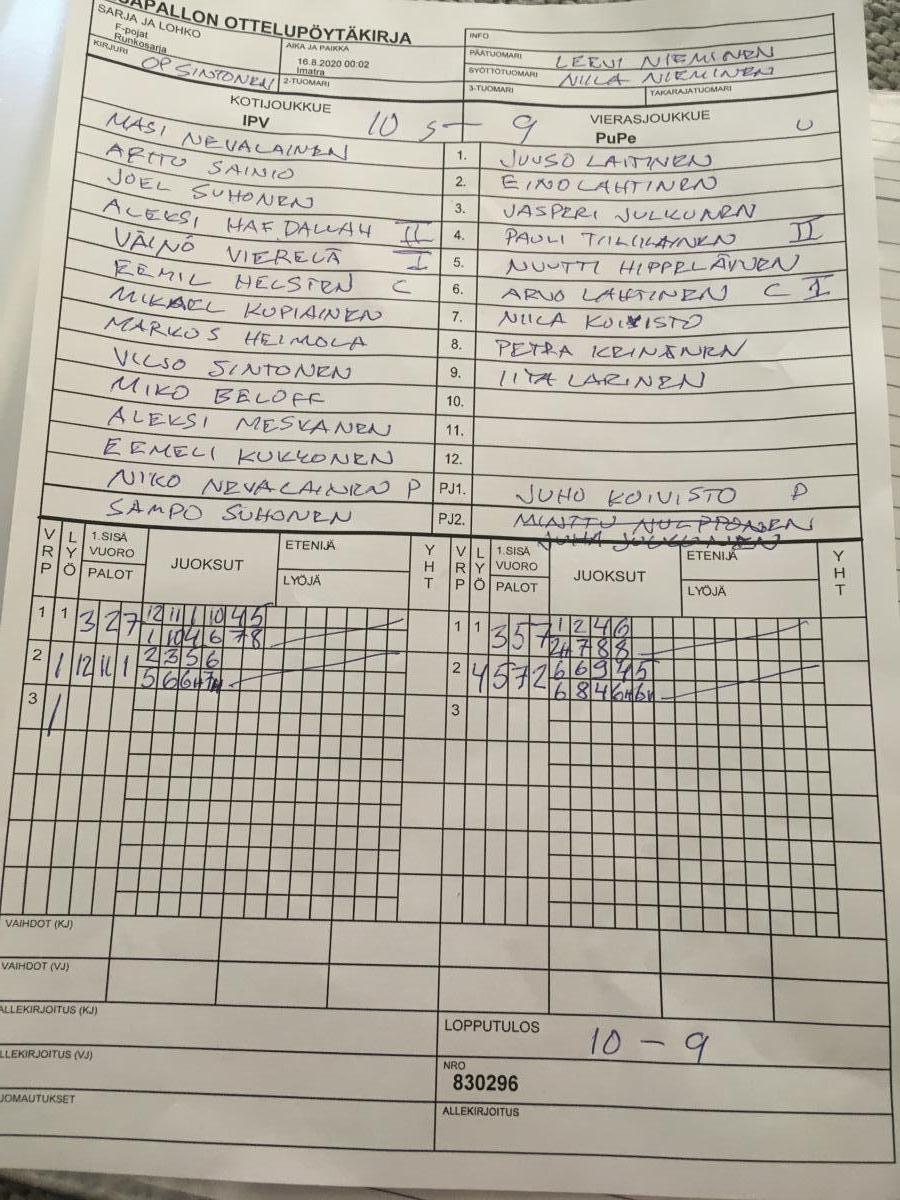 SAPALLON OTTELUPÖYTÄKIRJA
SARJA JA LOHKO
F-pojat
Runkosarja
AIKA JA PAIKKA
16.8.2020 00:02
Imatra
INFO
PÄÄTUOMARI LEEVI NIEMINEN
SYÖTTÖTUOMARI NIILA NIEMINEN
KIRJURI OP SINTONEN
2-TUOMARI
3-TUOMARI
TAKARAJATUOMARI
KOTIJOUKKUE
IPV
10 – 9
VIERASJOUKKUE
PuPe
U
S
MASI NEVALAINEN 1. JUUSO LAITINEN
ARTTU SAINIO 2. EINO LAHTINEN
JOEL SUHONEN 3. JASPERI JULKUNEN
ALEKSI HAFDALLAH II 4. PAULI TIILILAINEN II
VÄINÖ VIERELÄ I 5. NUUTTI HIPPELÄINEN
EEMIL HELSTEN C 6. ARVO LAHTINEN C I
MIKAEL KUPIAINEN 7. NIILA KOIVISTO
MARKUS HEIMOLA 8. PETRA KEINÄNEN
VILSO SINTONEN 9. IITA LARINEN
MIKO BELOFF 10.
ALEKSI MESKANEN 11.
EEMELI KUKKONEN 12.
NIKO NEVALAINEN P PJ1. JUHO KOIVISTO P
SAMPO SUHONEN PJ2. MINTTU NULPPONEN
JUHA JULKUNEN
VRP LYÖ 1.SISÄ VUORO PALOT JUOKSUT ETENIJÄ LYÖJÄ YHT
VRP LYÖ 1.SISÄ VUORO PALOT JUOKSUT ETENIJÄ LYÖJÄ YHT
1 1 3 2 7 12 11 1 10 4 5
1 10 4 6 7 8
1 1 3 5 7 1 2 4 6
2H 7 8 8
2 1 12 11 1 2 3 5 6
5 6 6H 7H
2 4 5 7 2 6 6 9 4 5
6 8 4 6H 6H
3 1
3
VAIHDOT (KJ)
VAIHDOT (VJ)
ALLEKIRJOITUS (KJ)
LLEKIRJOITUS (VJ)
UOMAUTUKSET
LOPPUTULOS 10 – 9
NRO
830296
ALLEKIRJOITUS